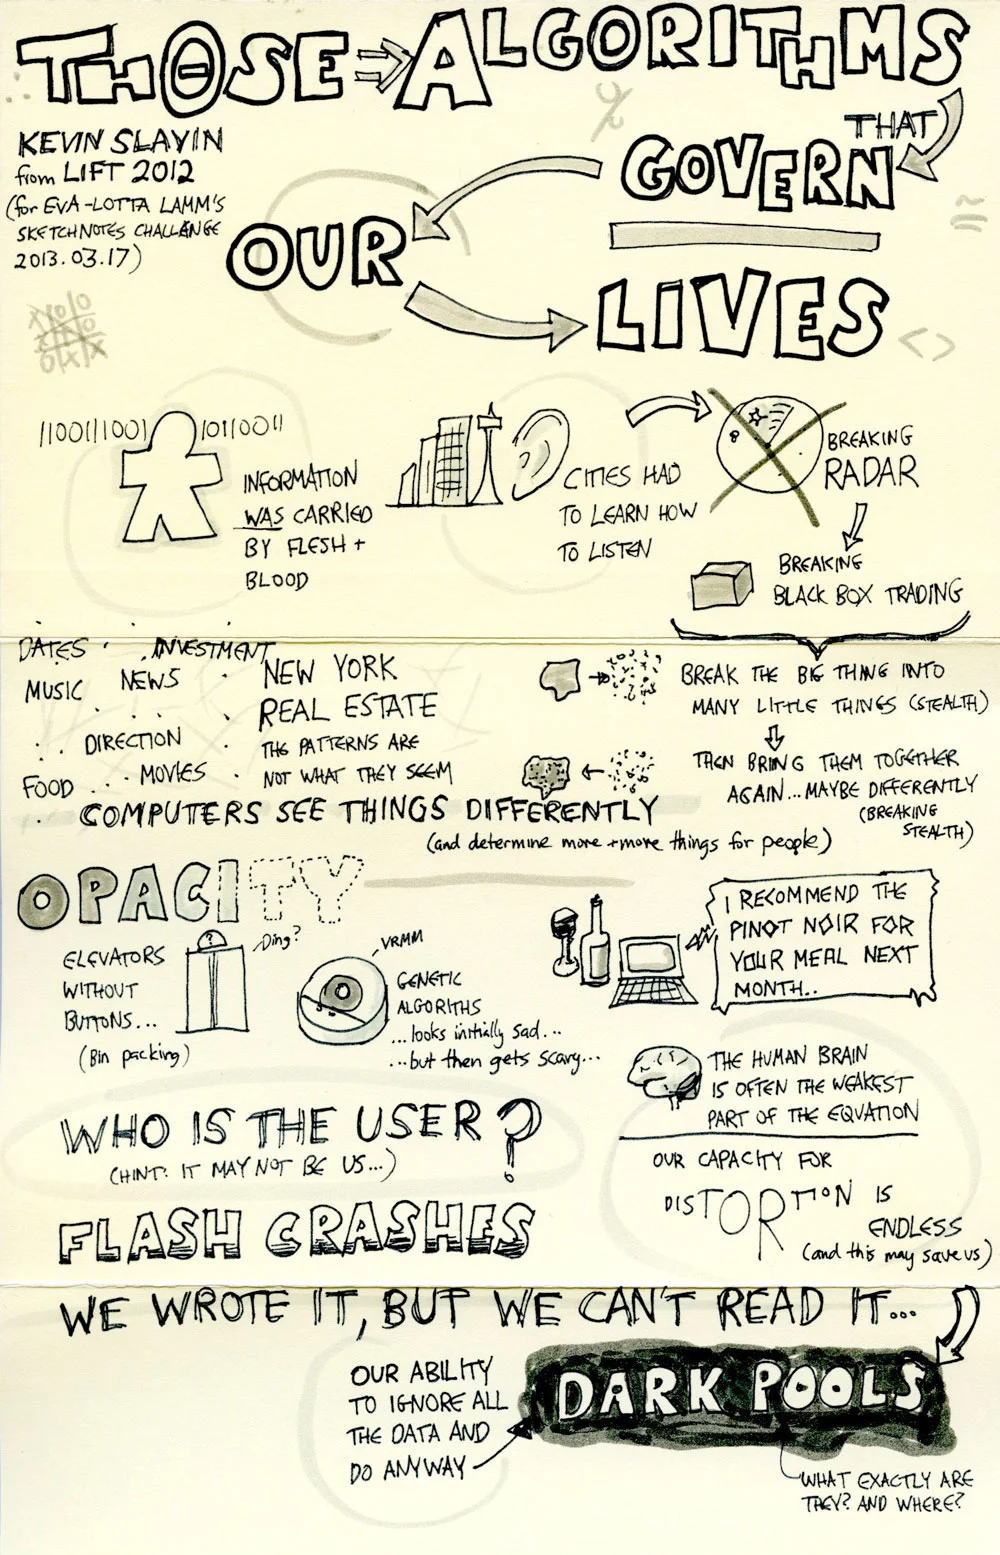 THOSE ALGORITHMS
THAT
GOVERN
OUR
LIVES
KEVIN SLAVIN
from LIFT 2012
(for EVA-LOTTA LAMM'S
SKETCHNOTES CHALLENGE
2013.03.17)
1100111001
10110011
INFORMATION
WAS CARRIED
BY FLESH +
BLOOD
CITIES HAD
TO LEARN HOW
TO LISTEN
BREAKING
RADAR
BREAKING
BLACK BOX TRADING
BREAK THE BIG THING INTO
MANY LITTLE THINGS (STEALTH)
THEN BRING THEM TOGETHER
AGAIN... MAYBE DIFFERENTLY
(BREAKING
STEALTH)
DATES
INVESTMENT
MUSIC
NEWS
DIRECTION
FOOD
MOVIES
NEW YORK
REAL ESTATE
THE PATTERNS ARE
NOT WHAT THEY SEEM
COMPUTERS SEE THINGS DIFFERENTLY
(and determine more + more things for people)
OPACITY
ELEVATORS
WITHOUT
BUTTONS...
(Bin packing)
?
Ding?
VRMM
GENETIC
ALGORITHS
...looks initially sad...
...but then gets scary...
I RECOMMEND THE
PINOT NOIR FOR
YOUR MEAL NEXT
MONTH..
THE HUMAN BRAIN
IS OFTEN THE WEAKEST
PART OF THE EQVATION
OUR CAPACITY FOR
DISTORTION IS
ENDLESS
(and this may save us)
WHO IS THE USER?
(HINT: IT MAY NOT BE US...)
FLASH CRASHES
WE WROTE IT, BUT WE CAN'T READ IT...
DARK POOLS
OUR ABILITY
TO IGNORE ALL
THE DATA AND
DO ANYWAY
WHAT EXACTLY ARE
THEY? AND WHERE?